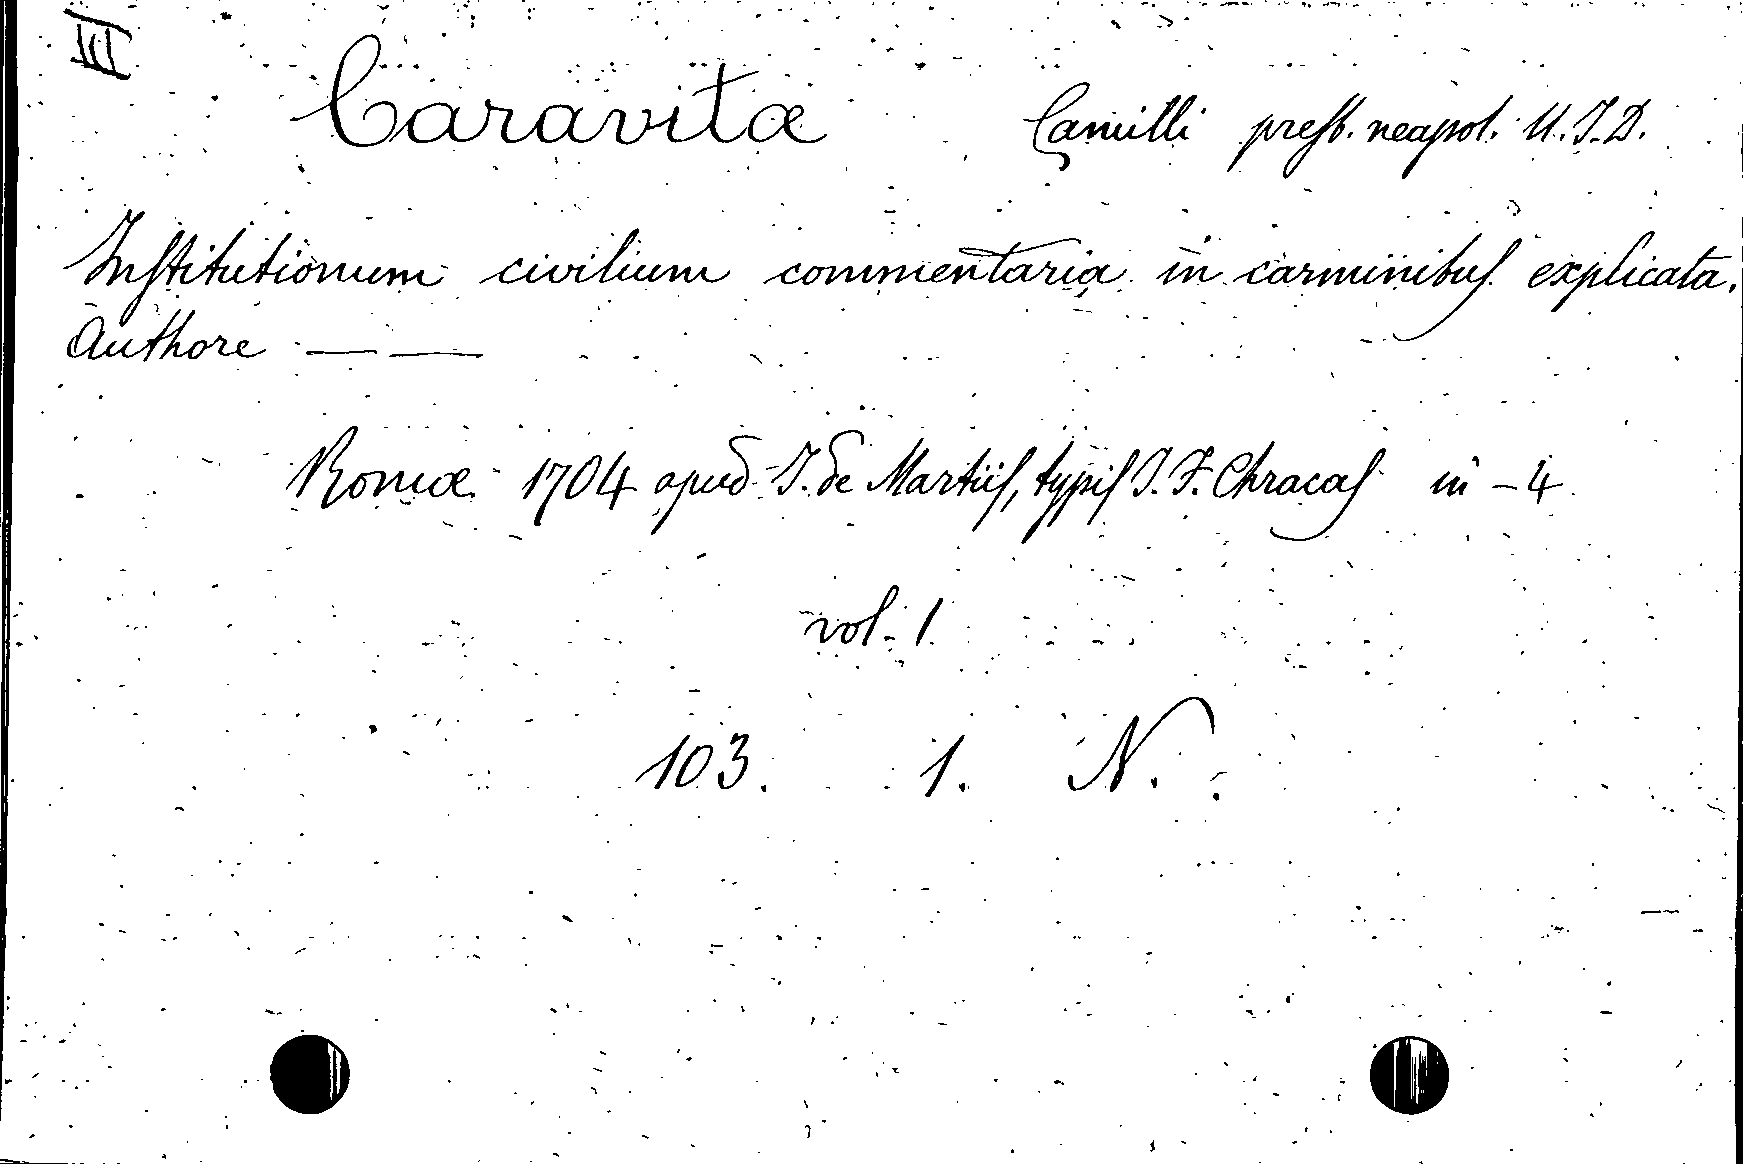 III
Caravitæ Camilli presb. neapol. U. J. D.
Institutionum civilium commentaria in carminibus explicata.
Authore — —
Romæ 1704 apud J. de Martiis, typis J. F. Chracas in - 4
vol. 1
103. 1. N.